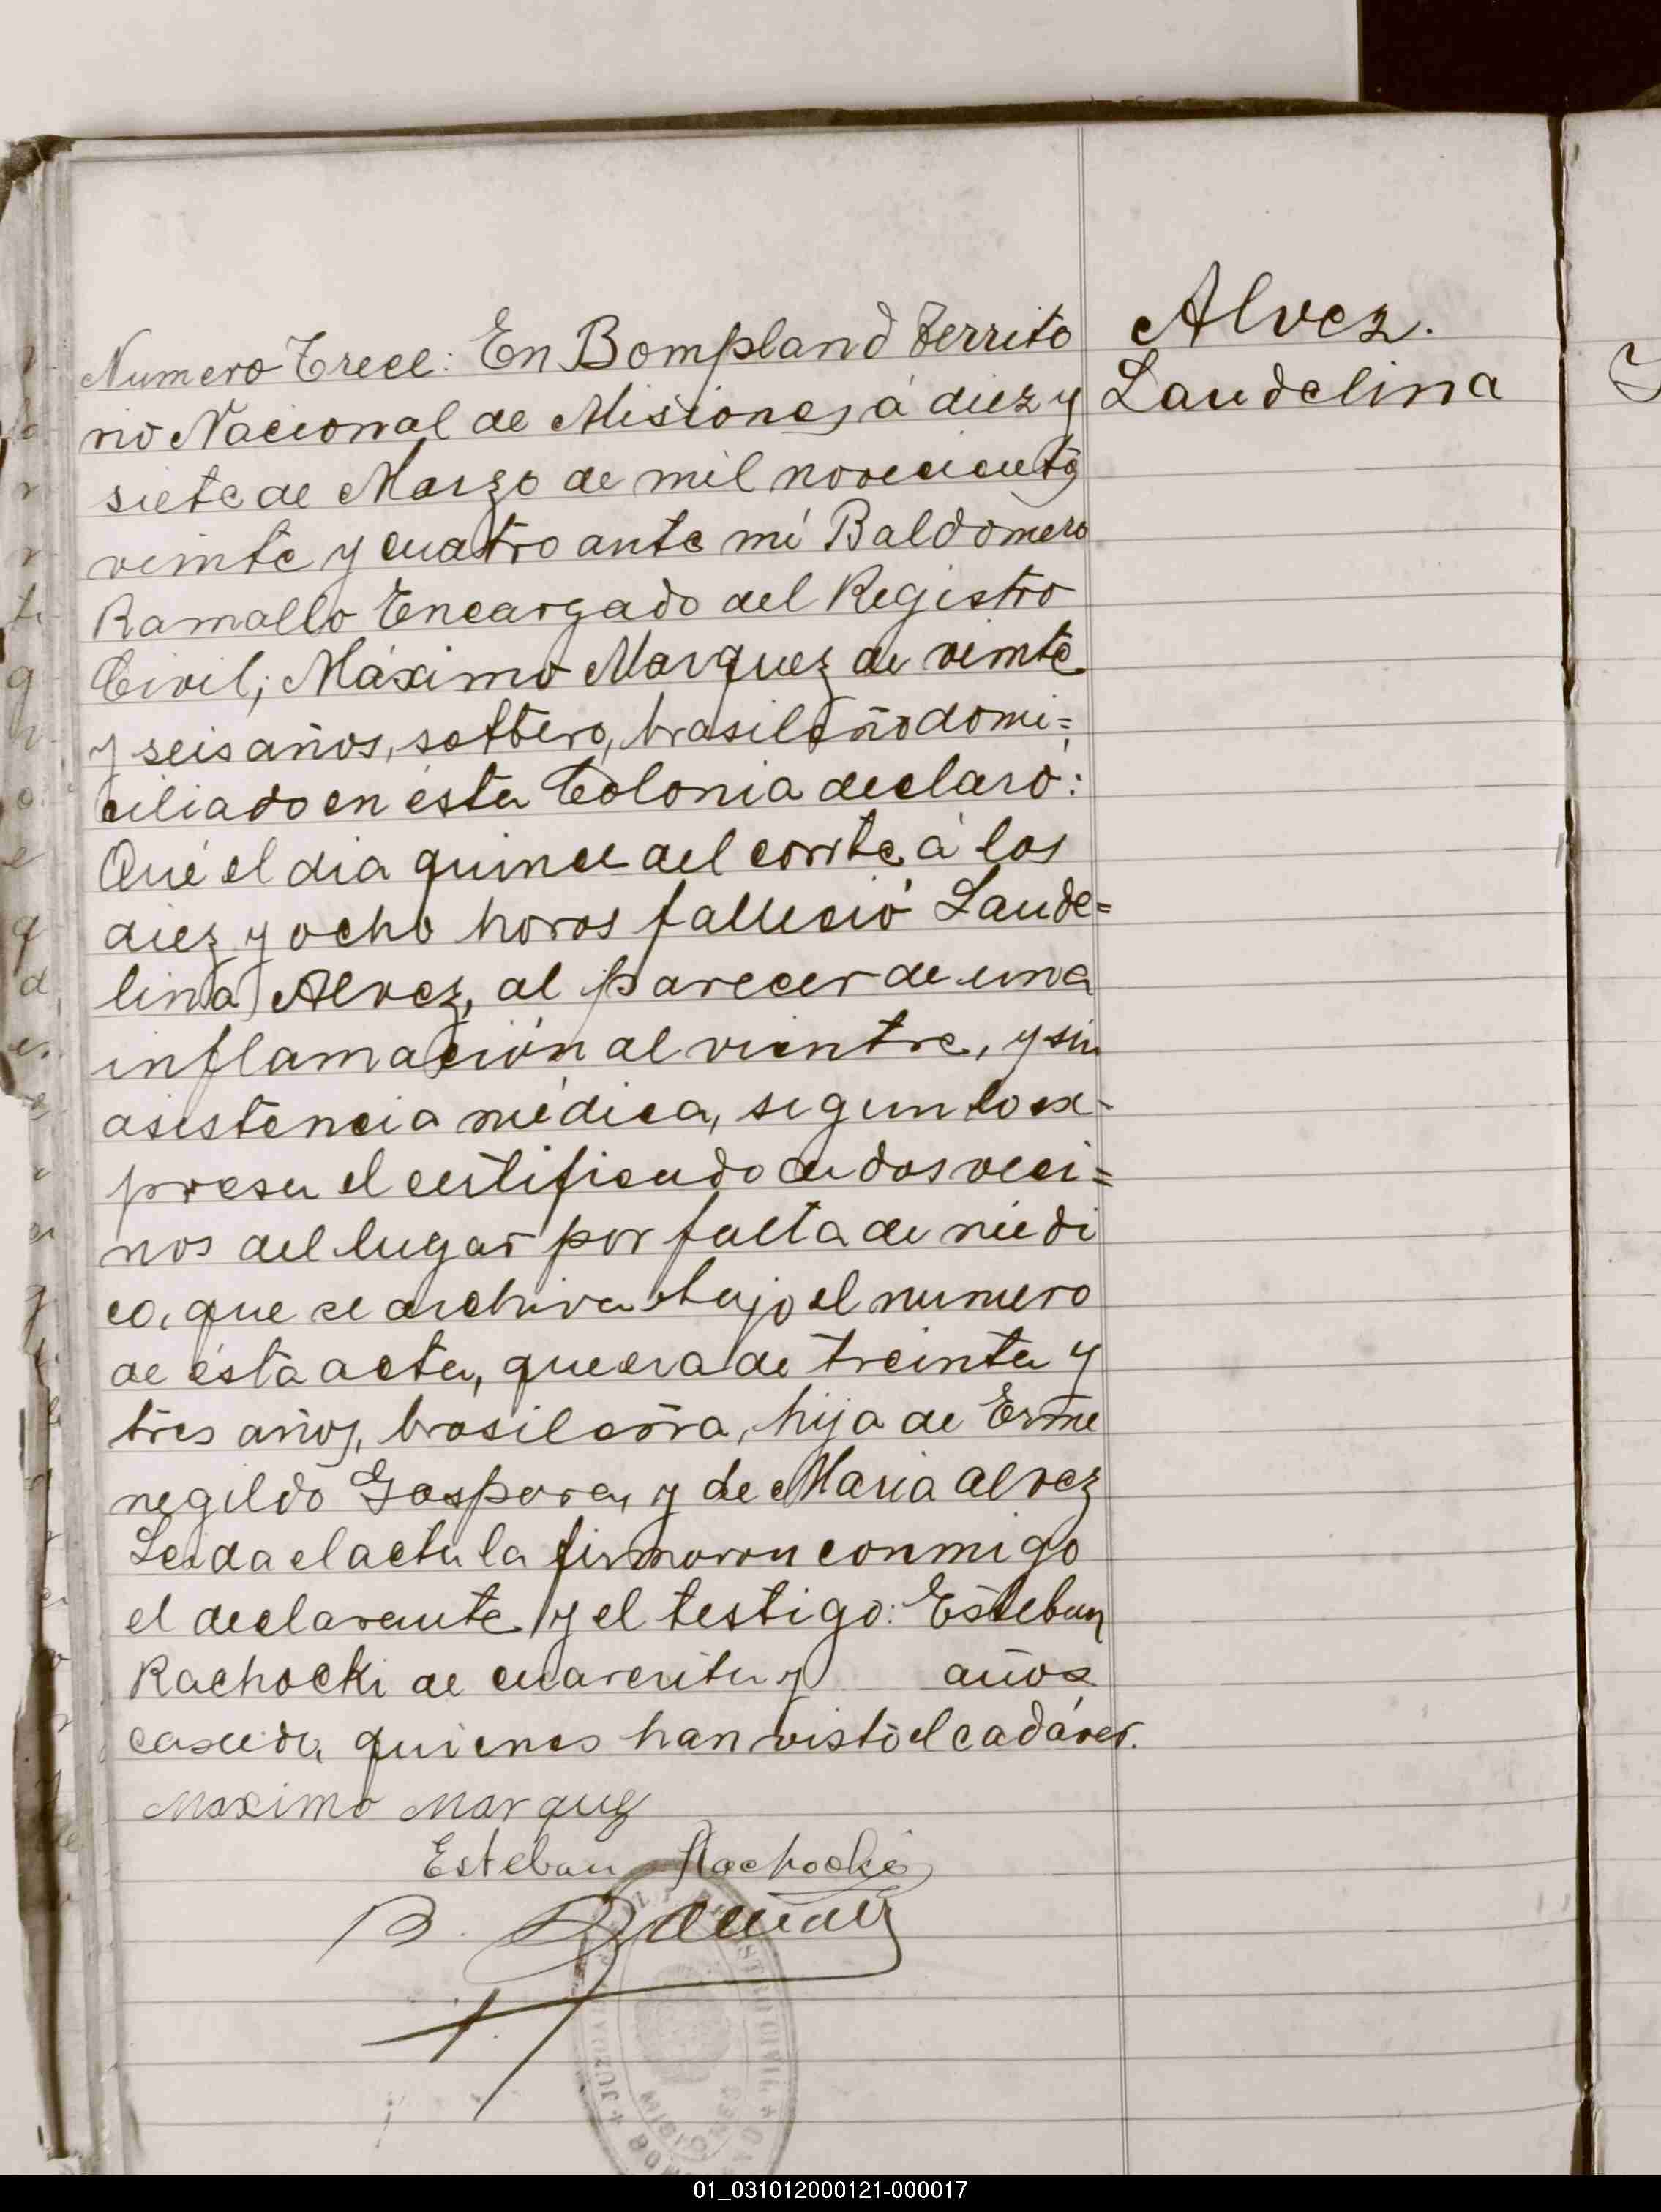 Alvez.
Laudelina
Numero Trece: En Bompland Territo
rio Nacional de Misiones, á diez y
siete de Marzo de mil novecientos
veinte y cuatro ante mí Baldomero
Ramallo Encargado del Registro
Civil; Máximo Marquez de veinte
y seis años, soltero, brasileño domi=
ciliado en ésta Colonia declaró:
Qué el dia quince del corrte, á las
diez y ocho horas falleció Laude=
lina Alvez, al parecer de una
inflamación al vientre, y sin
asistencia médica, segun lo ex-
presa el certificado de dos veci=
nos del lugar por falta de médi
co, que se archiva bajo el numero
de ésta acta, que era de treinta y
tres años, brasileña, hija de Erme
negildo Gaspora, y de Maria Alvez
Leida el acta la firmaron conmigo
el declarante y el testigo: Esteban
Rachocki de cuarenta y años
casado, quienes han visto el cadáver.
Maximo Marquez
Esteban Rachocki
B.
REGISTRO CIVIL
JUZGADO
01_031012000121-000017